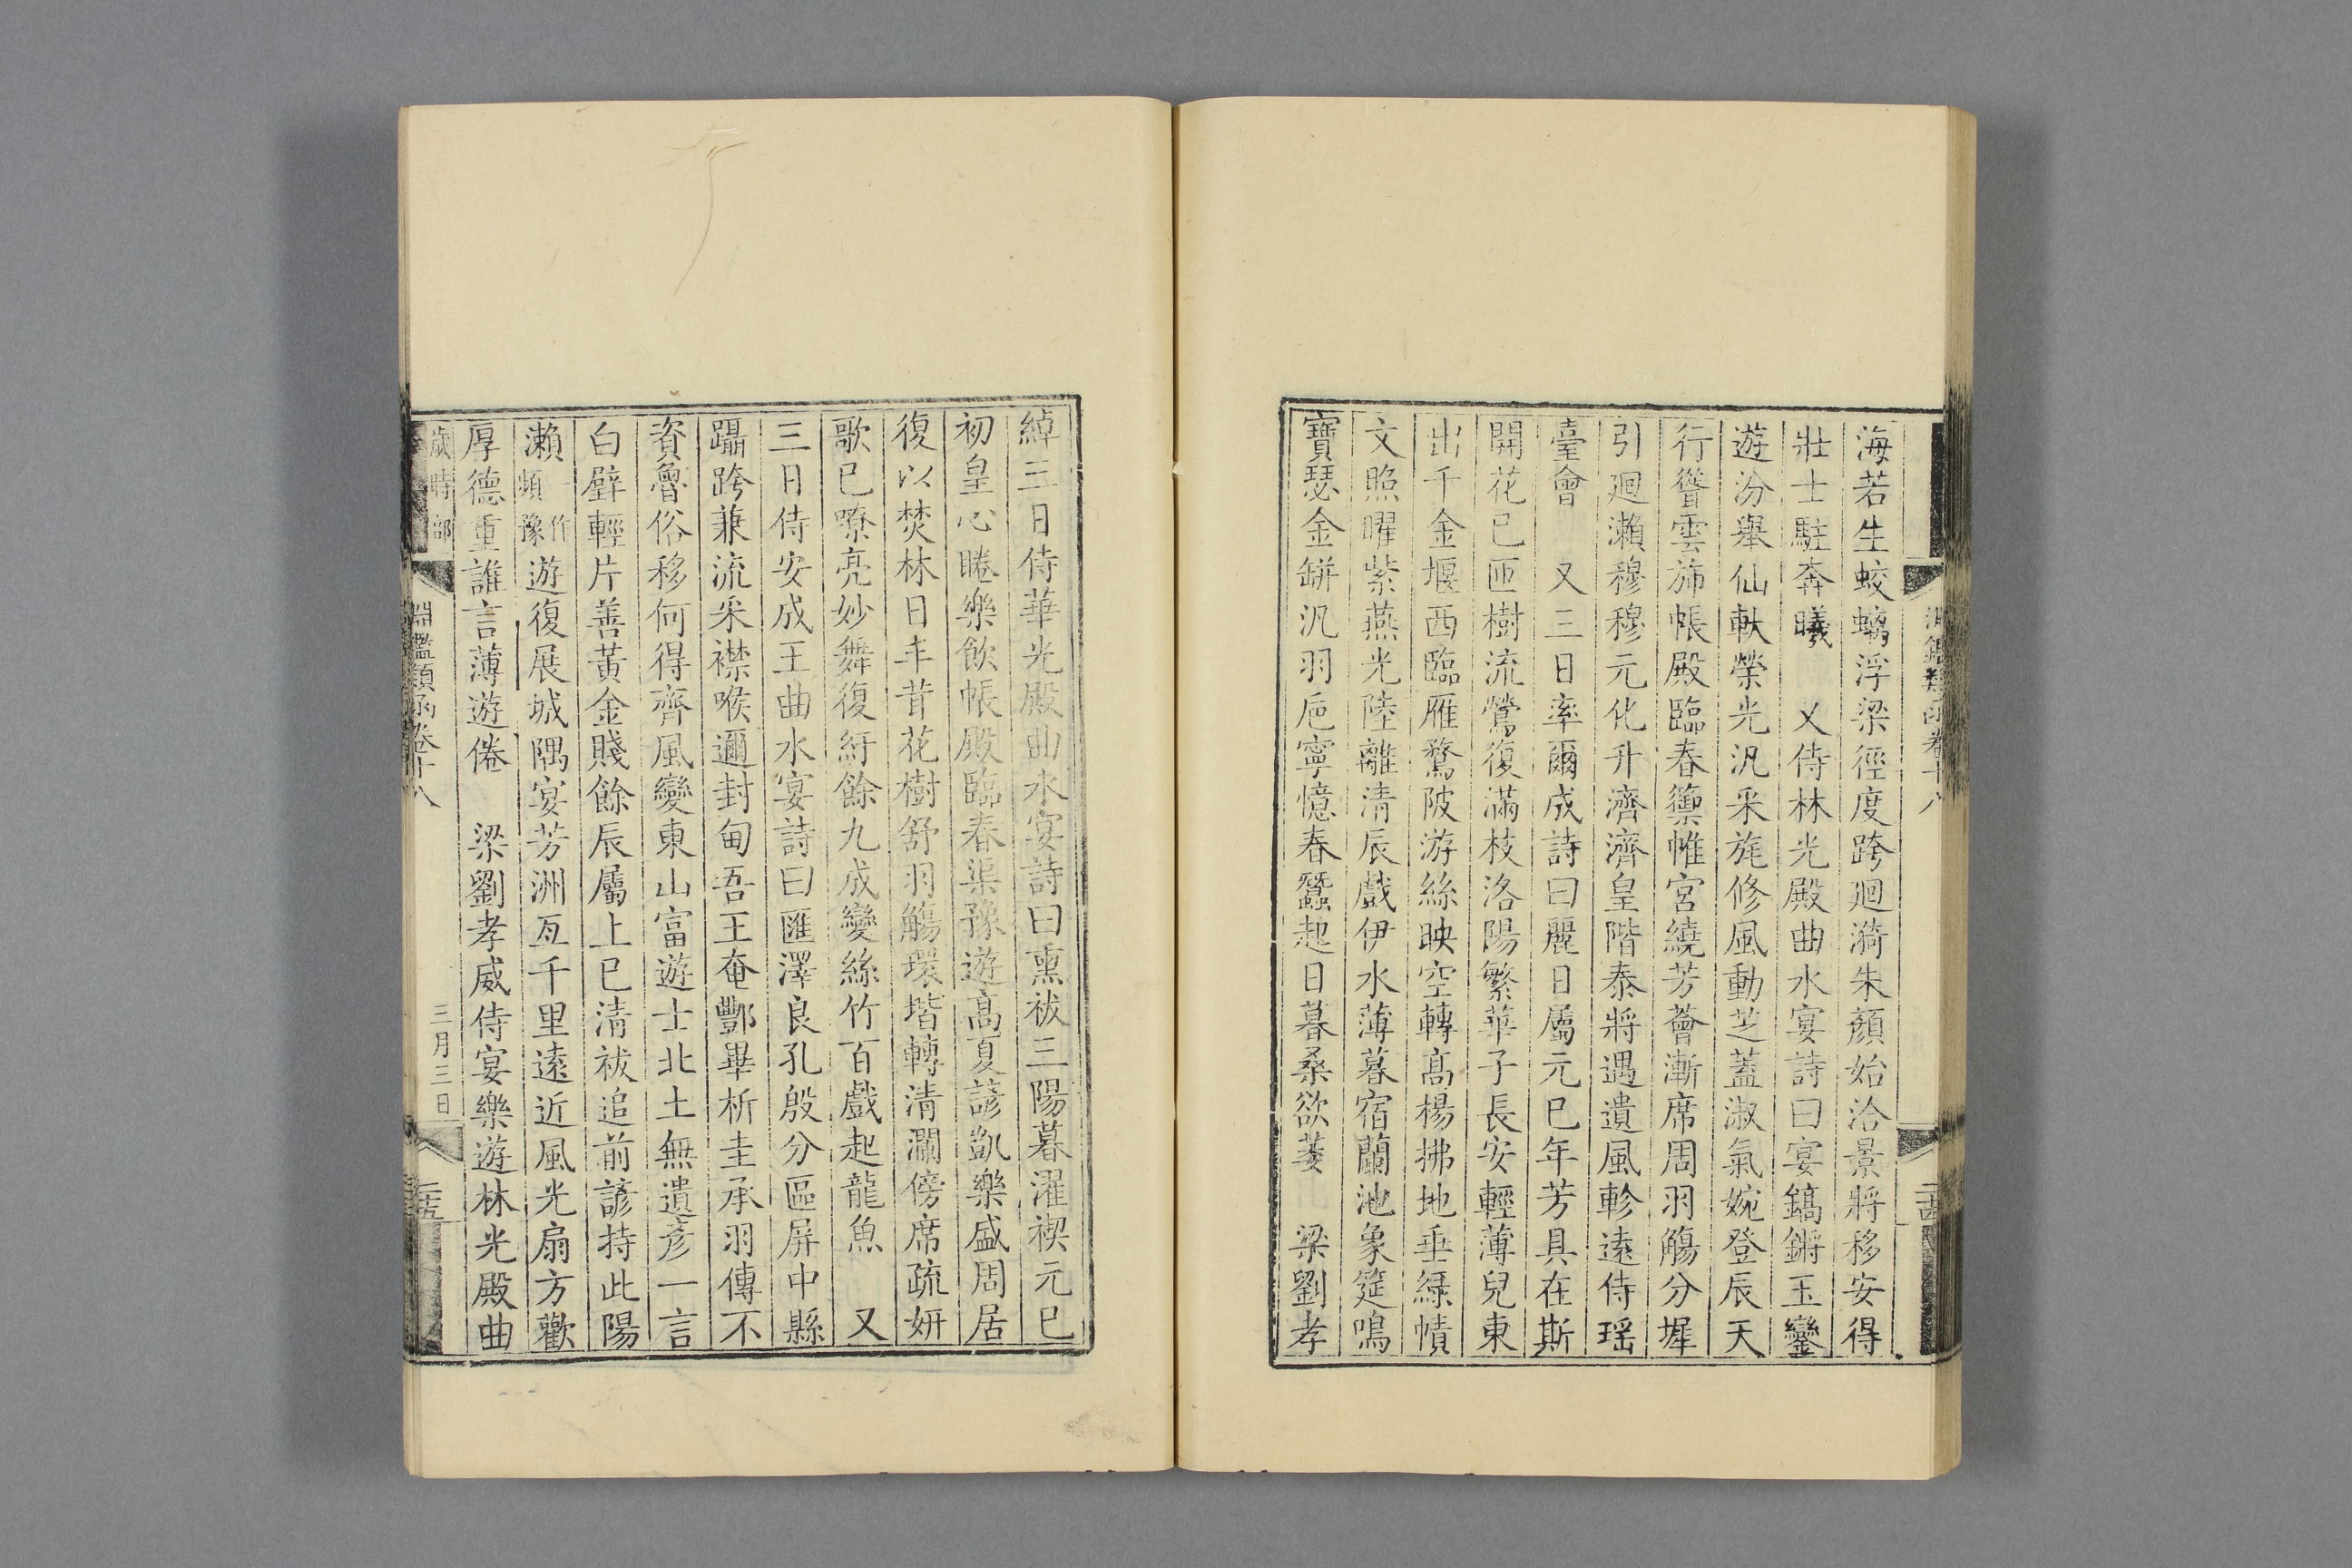 海若生蛟螭浮梁徑度跨廻漪朱顏始洽景將移安得
壯士駐奔曦　又侍林光殿曲水宴詩曰宴鎬鏘玉鑾
遊汾舉仙軑榮光汎采旄修風動芝蓋淑氣婉登辰天
行聳雲斾帳殿臨春籞帷宮繞芳薈漸席周羽觴分墀
引廻瀨穆穆元化升濟濟皇階泰將遇遺風軫遠侍瑶
臺會　又三日率爾成詩曰麗日屬元巳年芳具在斯
開花已匝樹流鶯復滿枝洛陽繁華子長安輕薄兒東
出千金堰西臨雁鶩陂游絲映空轉髙楊拂地垂綠幘
文照曜紫燕光陸離清辰戲伊水薄暮宿蘭池象筵鳴
寶瑟金缾汎羽巵寧憶春蠶起日暮桑欲萎　梁劉孝
綽三日侍華光殿曲水宴詩曰熏祓三陽暮濯禊元巳
初皇心睠樂飲帳殿臨春渠豫遊髙夏諺凱樂盛周居
復以焚林日丰茸花樹舒羽觴環堦轉清瀾傍席疏妍
歌已嘹亮妙舞復紆餘九成變絲竹百戲起龍魚　又
三日侍安成王曲水宴詩曰匯澤良孔殷分區屏中縣
躡跨兼流采襟喉邇封甸吾王奄酆畢析圭承羽傳不
資魯俗移何得齊風變東山富遊士北土無遺彥一言
白璧輕片善黃金賤餘辰屬上巳清祓追前諺持此陽
瀨一作頻豫遊復展城隅宴芳洲亙千里遠近風光扇方歡
厚德重誰言薄遊倦　梁劉孝威侍宴樂遊林光殿曲
歲時部　淵鑑類函卷十八　三月三日　二十五